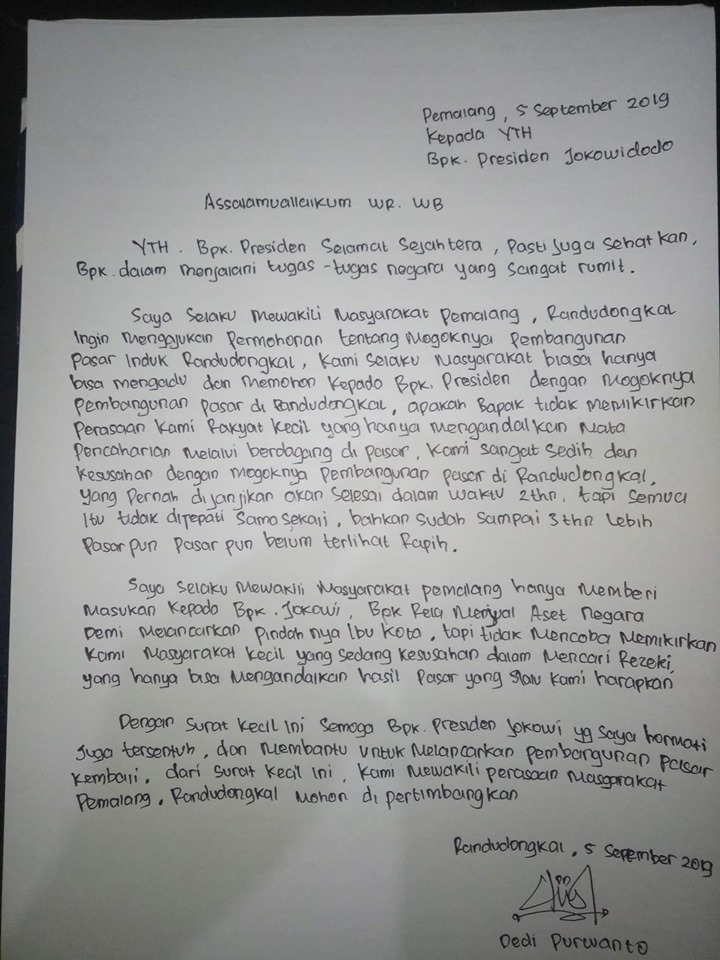 Pemalang, 5 September 2019
Kepada YTH
Bpk. Presiden Jokowidodo
Assalamuallaikum WR. WB
YTH. Bpk. Presiden Selamat Sejahtera, Pasti Juga Sehat kan,
Bpk. dalam menjalani tugas-tugas negara yang sangat rumit.
Saya Selaku Mewakili Masyarakat Pemalang, Randudongkal
Ingin Menggjukan Permohonan tentang Mogoknya Pembangunan
Pasar Induk Randudongkal, Kami Selaku Masyarakat biasa hanya
bisa mengadu dan Memohon Kepada Bpk. Presiden dengan Mogoknya
Pembangunan Pasar di Randudongkal, apakah Bapak tidak Memikirkan
Perasaan Kami Rakyat Kecil yang hanya Mengandalkan Mata
Pencaharian Melalui berdagang di pasar, Kami sangat Sedih dan
Kesusahan dengan Mogoknya Pembangunan pasar di Randudongkal,
yang Pernah di janjikan akan Selesai dalam waktu 2thn, tapi Semua
Itu tidak ditepati Sama Sekali, bahkan Sudah Sampai 3thn Lebih
Pasar pun Pasar pun belum terlihat Rapih.
Saya Selaku Mewakili Masyarakat pemalang hanya Memberi
Masukan Kepada Bpk. Jokowi, Bpk Rela Menjual Aset negara
Demi Melancarkan Pindah nya Ibu Kota, tapi tidak Mencoba Memikirkan
Kami Masyarakat Kecil yang Sedang Kesusahan dalam Mencari Rezeki,
yang hanya bisa Mengandalkan hasil Pasar yang Slalu Kami harapkan
Dengan Surat Kecil Ini Semoga Bpk. Presiden Jokowi yg Saya hormati
Juga tersentuh, dan Membantu untuk Melancarkan pembangunan Pasar
Kembali, dari Surat Kecil Ini, Kami Mewakili perasaan Masyarakat
Pemalang, Randudongkal Mohon di pertimbangkan
Randudongkal, 5 September 2019
Dedi Purwanto